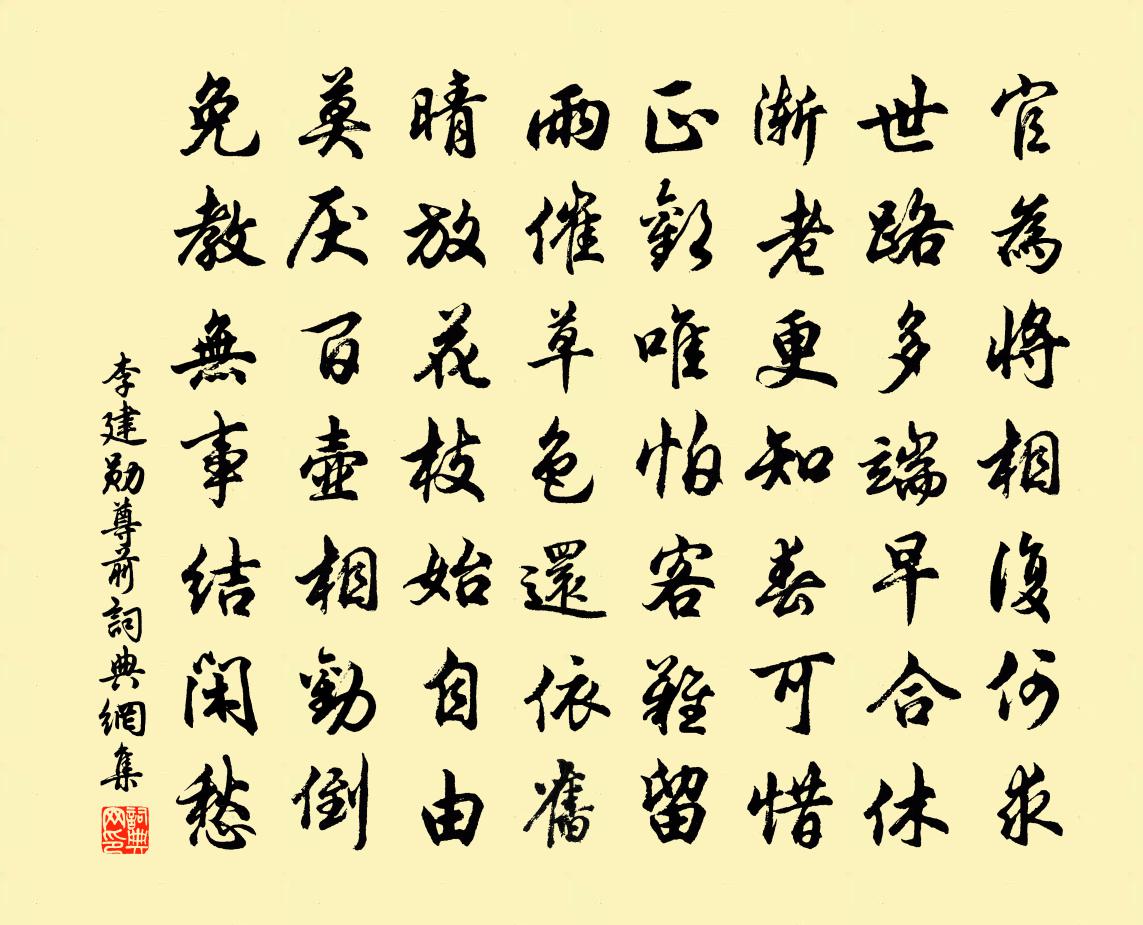 官為將相復何求
世路多端早合休
漸老更知春可惜
正歡唯怕客難留
雨催草色還依舊
晴放花枝始自由
莫厌百壺相勸倒
免教無事結閑愁
李建勛尊前詞典網集
詞典網印